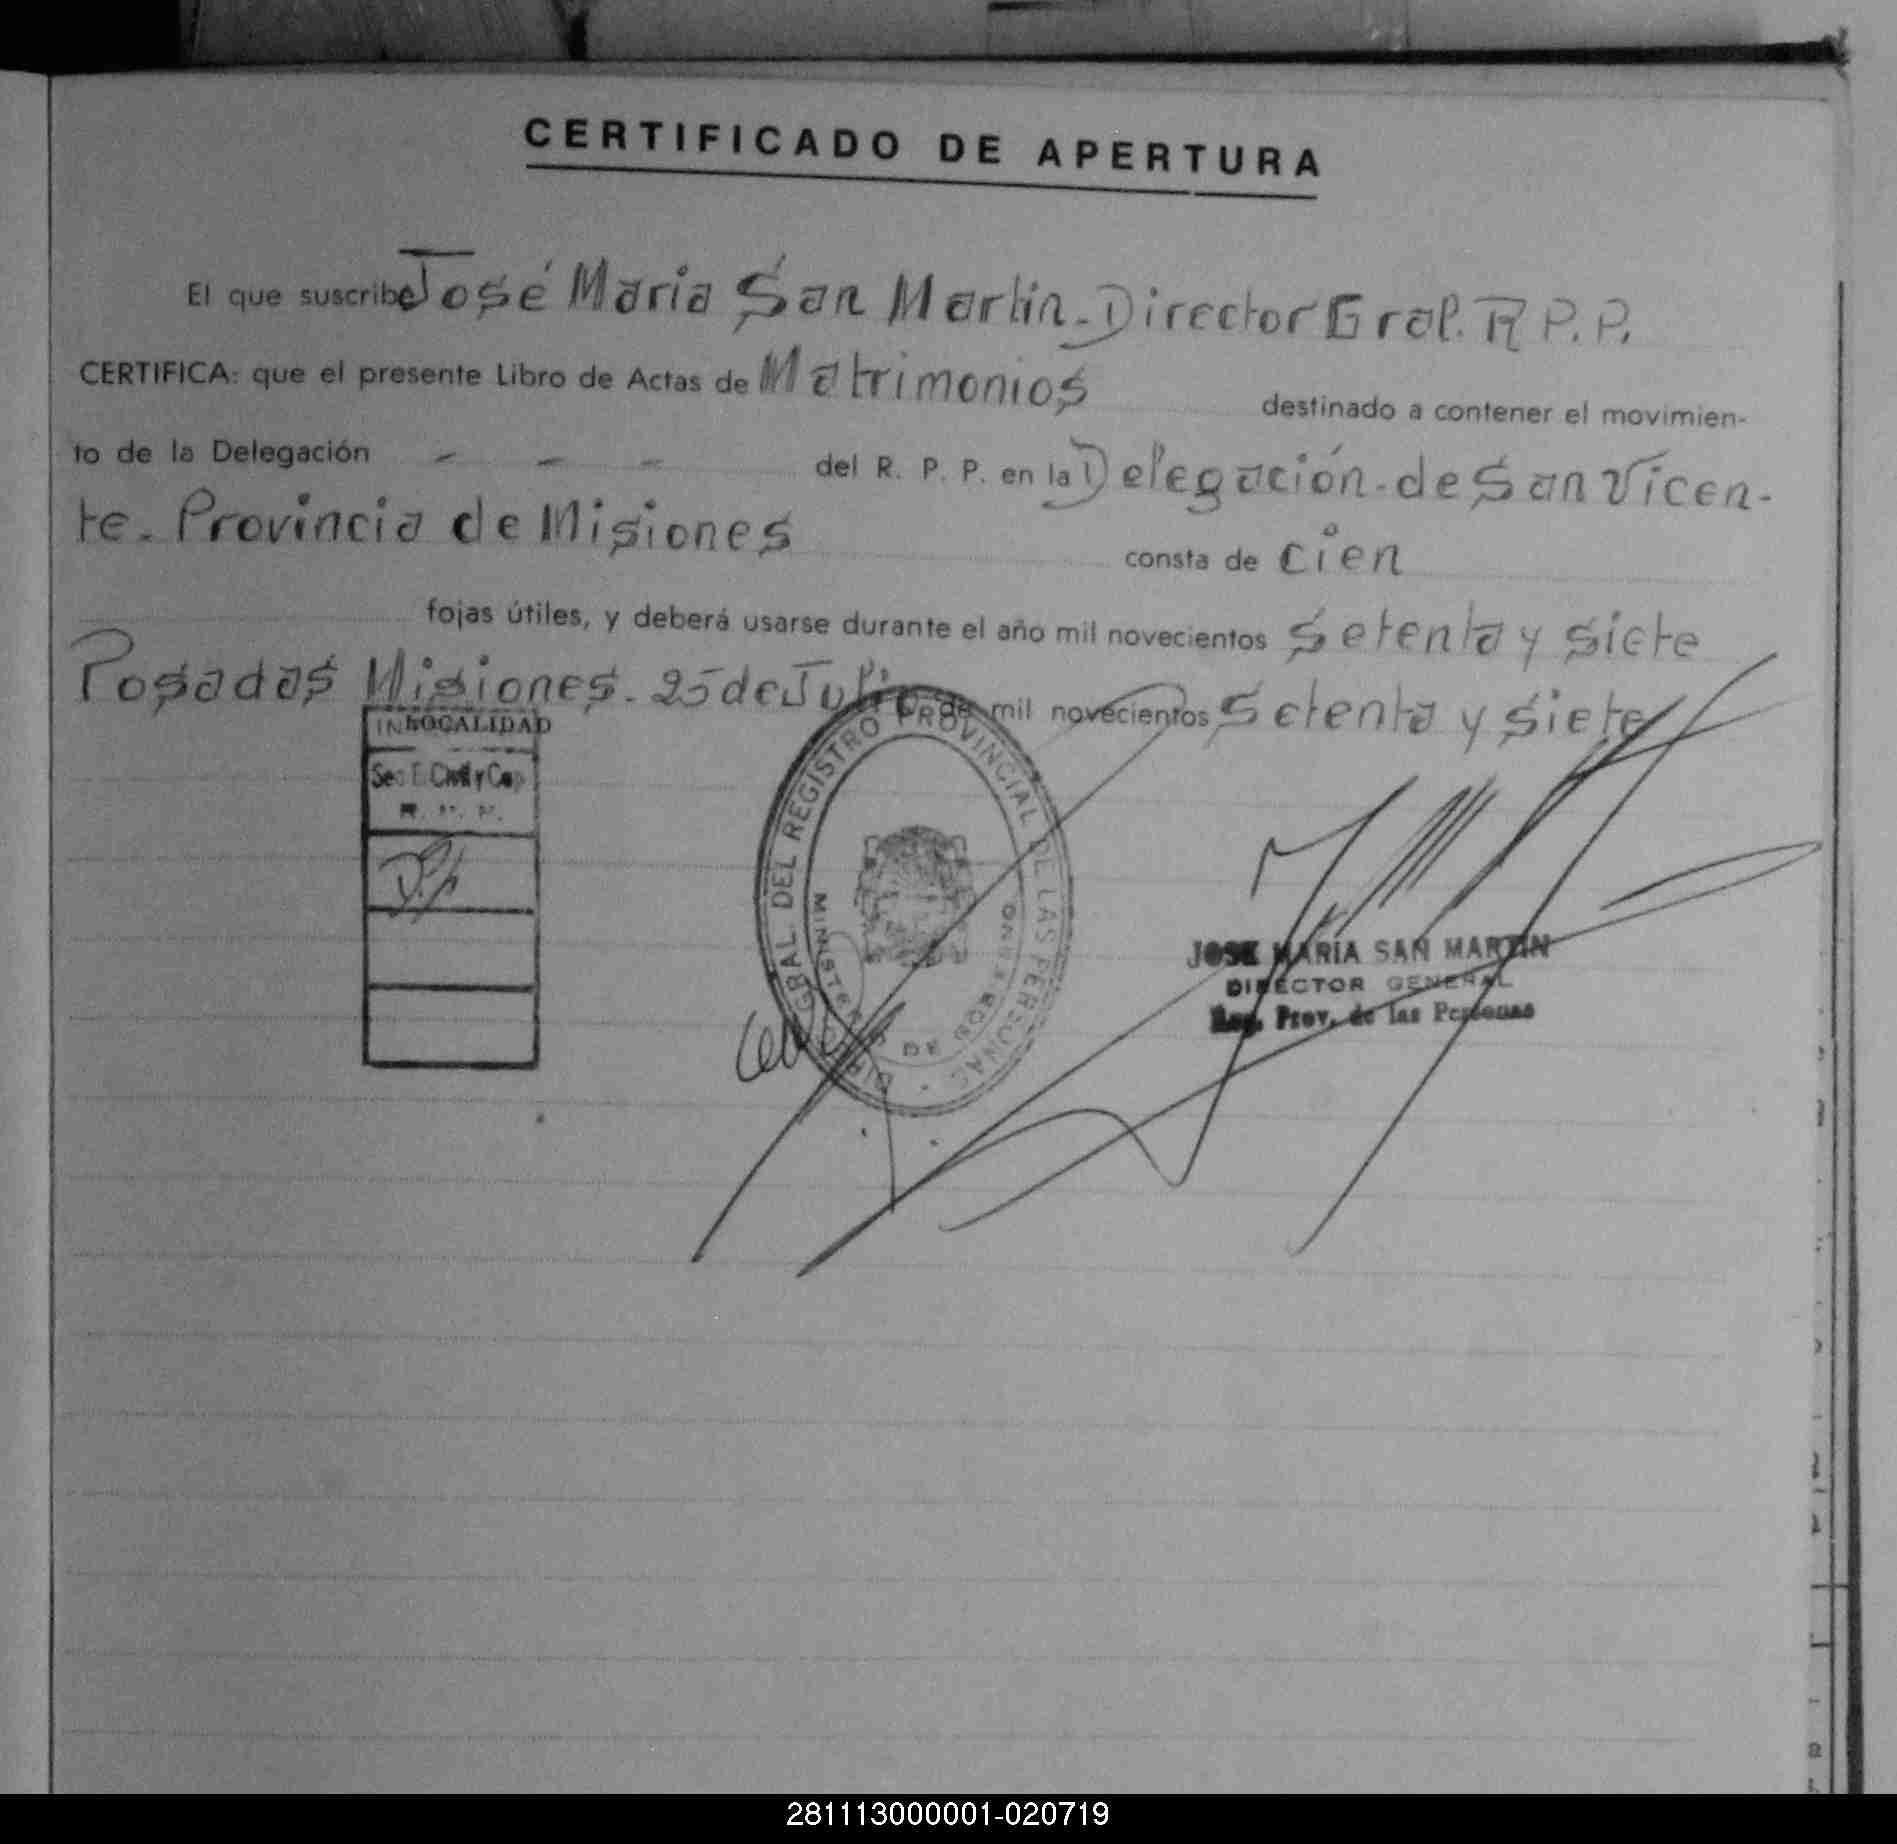 CERTIFICADO DE APERTURA
El que suscribe José María San Martín. Director Gral. R P. P.
CERTIFICA: que el presente Libro de Actas de Matrimonios destinado a contener el movimien-
to de la Delegación - - - del R. P. P. en la Delegación de San Vicen-
te. Provincia de Misiones consta de cien
fojas útiles, y deberá usarse durante el año mil novecientos setenta y siete
Posadas Misiones. 25 de Julio de mil novecientos setenta y siete
LOCALIDAD
Sec E. Civil y Cap
R. P. P.
DIR. GRAL. DEL REGISTRO PROVINCIAL DE LAS PERSONAS
MINISTERIO DE GOBIERNO
JOSE MARIA SAN MARTIN
DIRECTOR GENERAL
Reg. Prov. de las Personas
281113000001-020719